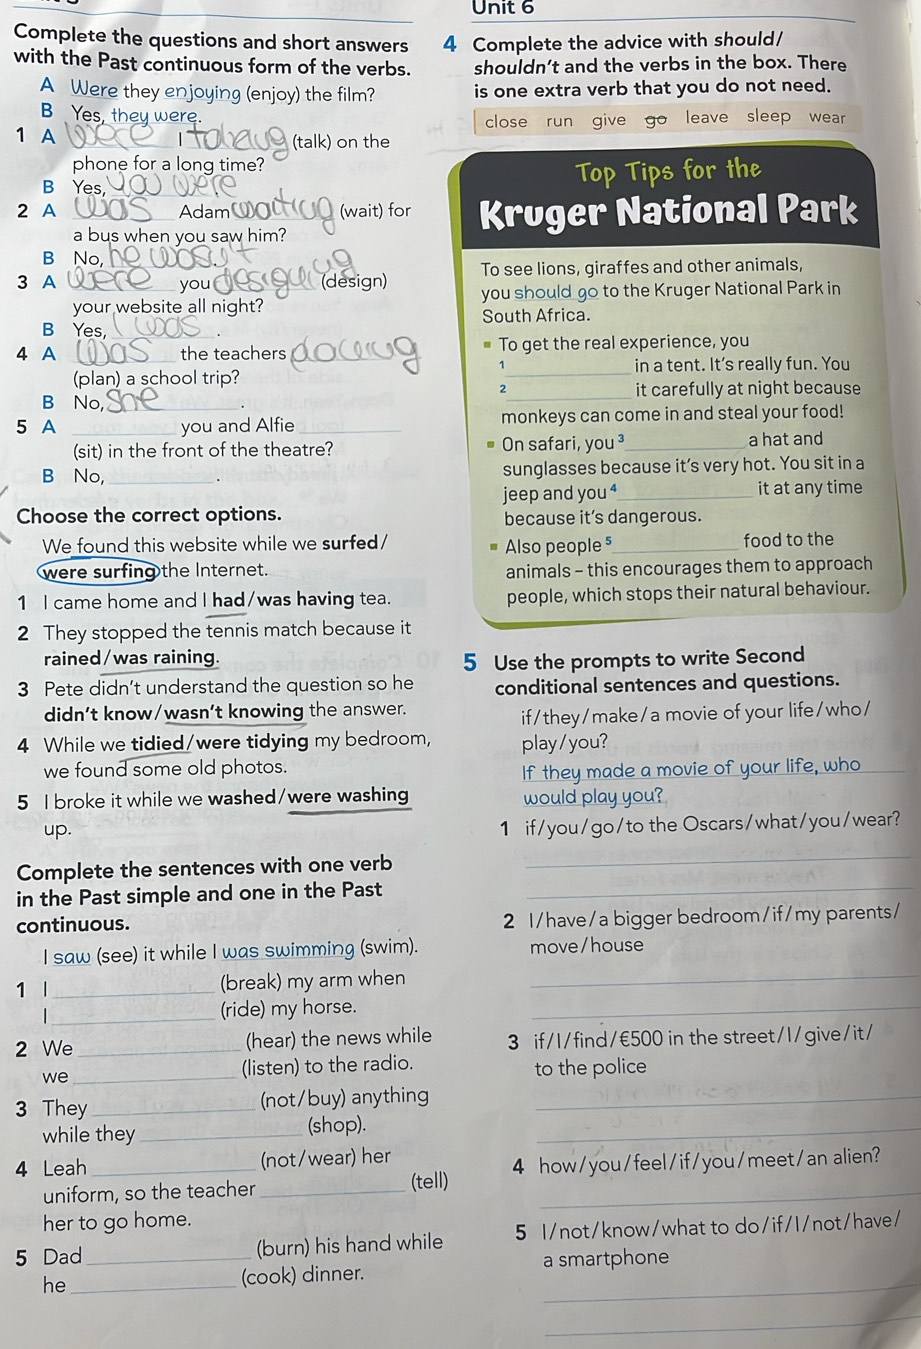 Unit 6
Complete the questions and short answers
with the Past continuous form of the verbs.
A Were they enjoying (enjoy) the film?
B Yes, they were.
1 A were I talking (talk) on the
phone for a long time?
B Yes, you were
2 A was Adam waiting (wait) for
a bus when you saw him?
B No, he wasn't.
3 A were you (design)
your website all night?
B Yes, I was.
4 A was the teachers (plan) a school trip?
B No, She.
5 A you and Alfie
(sit) in the front of the theatre?
B No, .
Choose the correct options.
We found this website while we surfed/
were surfing the Internet.
1 I came home and I had/was having tea.
2 They stopped the tennis match because it
rained/was raining.
3 Pete didn't understand the question so he
didn't know/wasn't knowing the answer.
4 While we tidied/were tidying my bedroom,
we found some old photos.
5 I broke it while we washed/were washing
up.
Complete the sentences with one verb
in the Past simple and one in the Past
continuous.
I saw (see) it while I was swimming (swim).
1 I (break) my arm when
I (ride) my horse.
2 We (hear) the news while
we (listen) to the radio.
3 They (not/buy) anything
while they (shop).
4 Leah (not/wear) her
uniform, so the teacher (tell)
her to go home.
5 Dad (burn) his hand while
he (cook) dinner.
4 Complete the advice with should/
shouldn't and the verbs in the box. There
is one extra verb that you do not need.
close run give go leave sleep wear
Top Tips for the
Kruger National Park
To see lions, giraffes and other animals,
you should go to the Kruger National Park in
South Africa.
▪ To get the real experience, you
1 in a tent. It's really fun. You
2 it carefully at night because
monkeys can come in and steal your food!
▪ On safari, you 3 a hat and
sunglasses because it's very hot. You sit in a
jeep and you 4 it at any time
because it's dangerous.
▪ Also people 5 food to the
animals – this encourages them to approach
people, which stops their natural behaviour.
5 Use the prompts to write Second
conditional sentences and questions.
if/they/make/a movie of your life/who/
play/you?
If they made a movie of your life, who
would play you?
1 if/you/go/to the Oscars/what/you/wear?
2 I/have/a bigger bedroom/if/my parents/
move/house
3 if/I/find/€500 in the street/I/give/it/
to the police
4 how/you/feel/if/you/meet/an alien?
5 I/not/know/what to do/if/I/not/have/
a smartphone